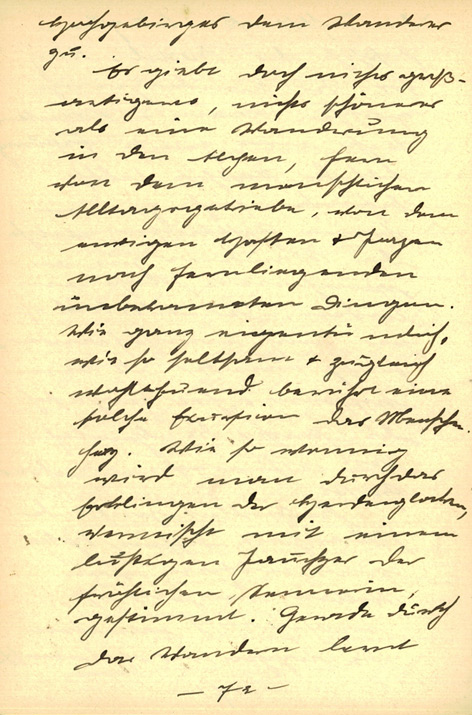 Hochgebirges dem Wanderer
zu.
Es giebt doch nichts groß-
artigeres, nichts schöneres
als eine Wanderung
in den Alpen, fern
von dem menschlichen
Alltagsgetriebe, von dem
ewigen Hasten & Jagen
nach fernliegenden
unbekannten Dingen.
Wie ganz eigentümlich,
wie so seltsam & zugleich
wohltuend berührt eine
solche Exkursion das Menschen-
herz. Wie so wonnig
wird man durch das
Erklingen der Herdenglocken,
vermischt mit einem
lustigen Jauchzer der
fröhlichen Sennerin,
gestimmt. Gerade durch
das Wandern lernt